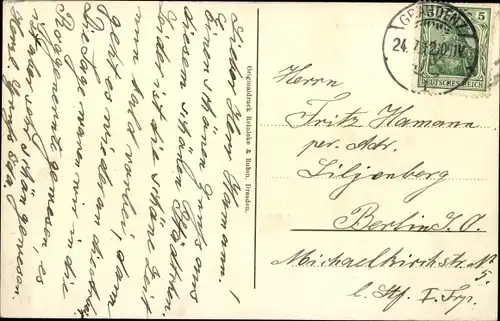 Lieber Herr Hamann!
Einen schönen Gruß aus
diesem schönen Städtchen.
Leider ist die schöne Zeit
nun bald vorbei, dann
geht es wieder an die Arbeit
Die Tage waren wir in die
Roggenernte gewesen, es
ist sehr schön gewesen.
Originaldruck Reinicke & Rubin, Dresden.
GRAUDENZ
24.7.
5
DEUTSCHES REICH
Herrn
Fritz Hamann
per. Adr.
Liljenberg
Berlin S.O.
Michaelkirchstr. No
5.
I. Trp.